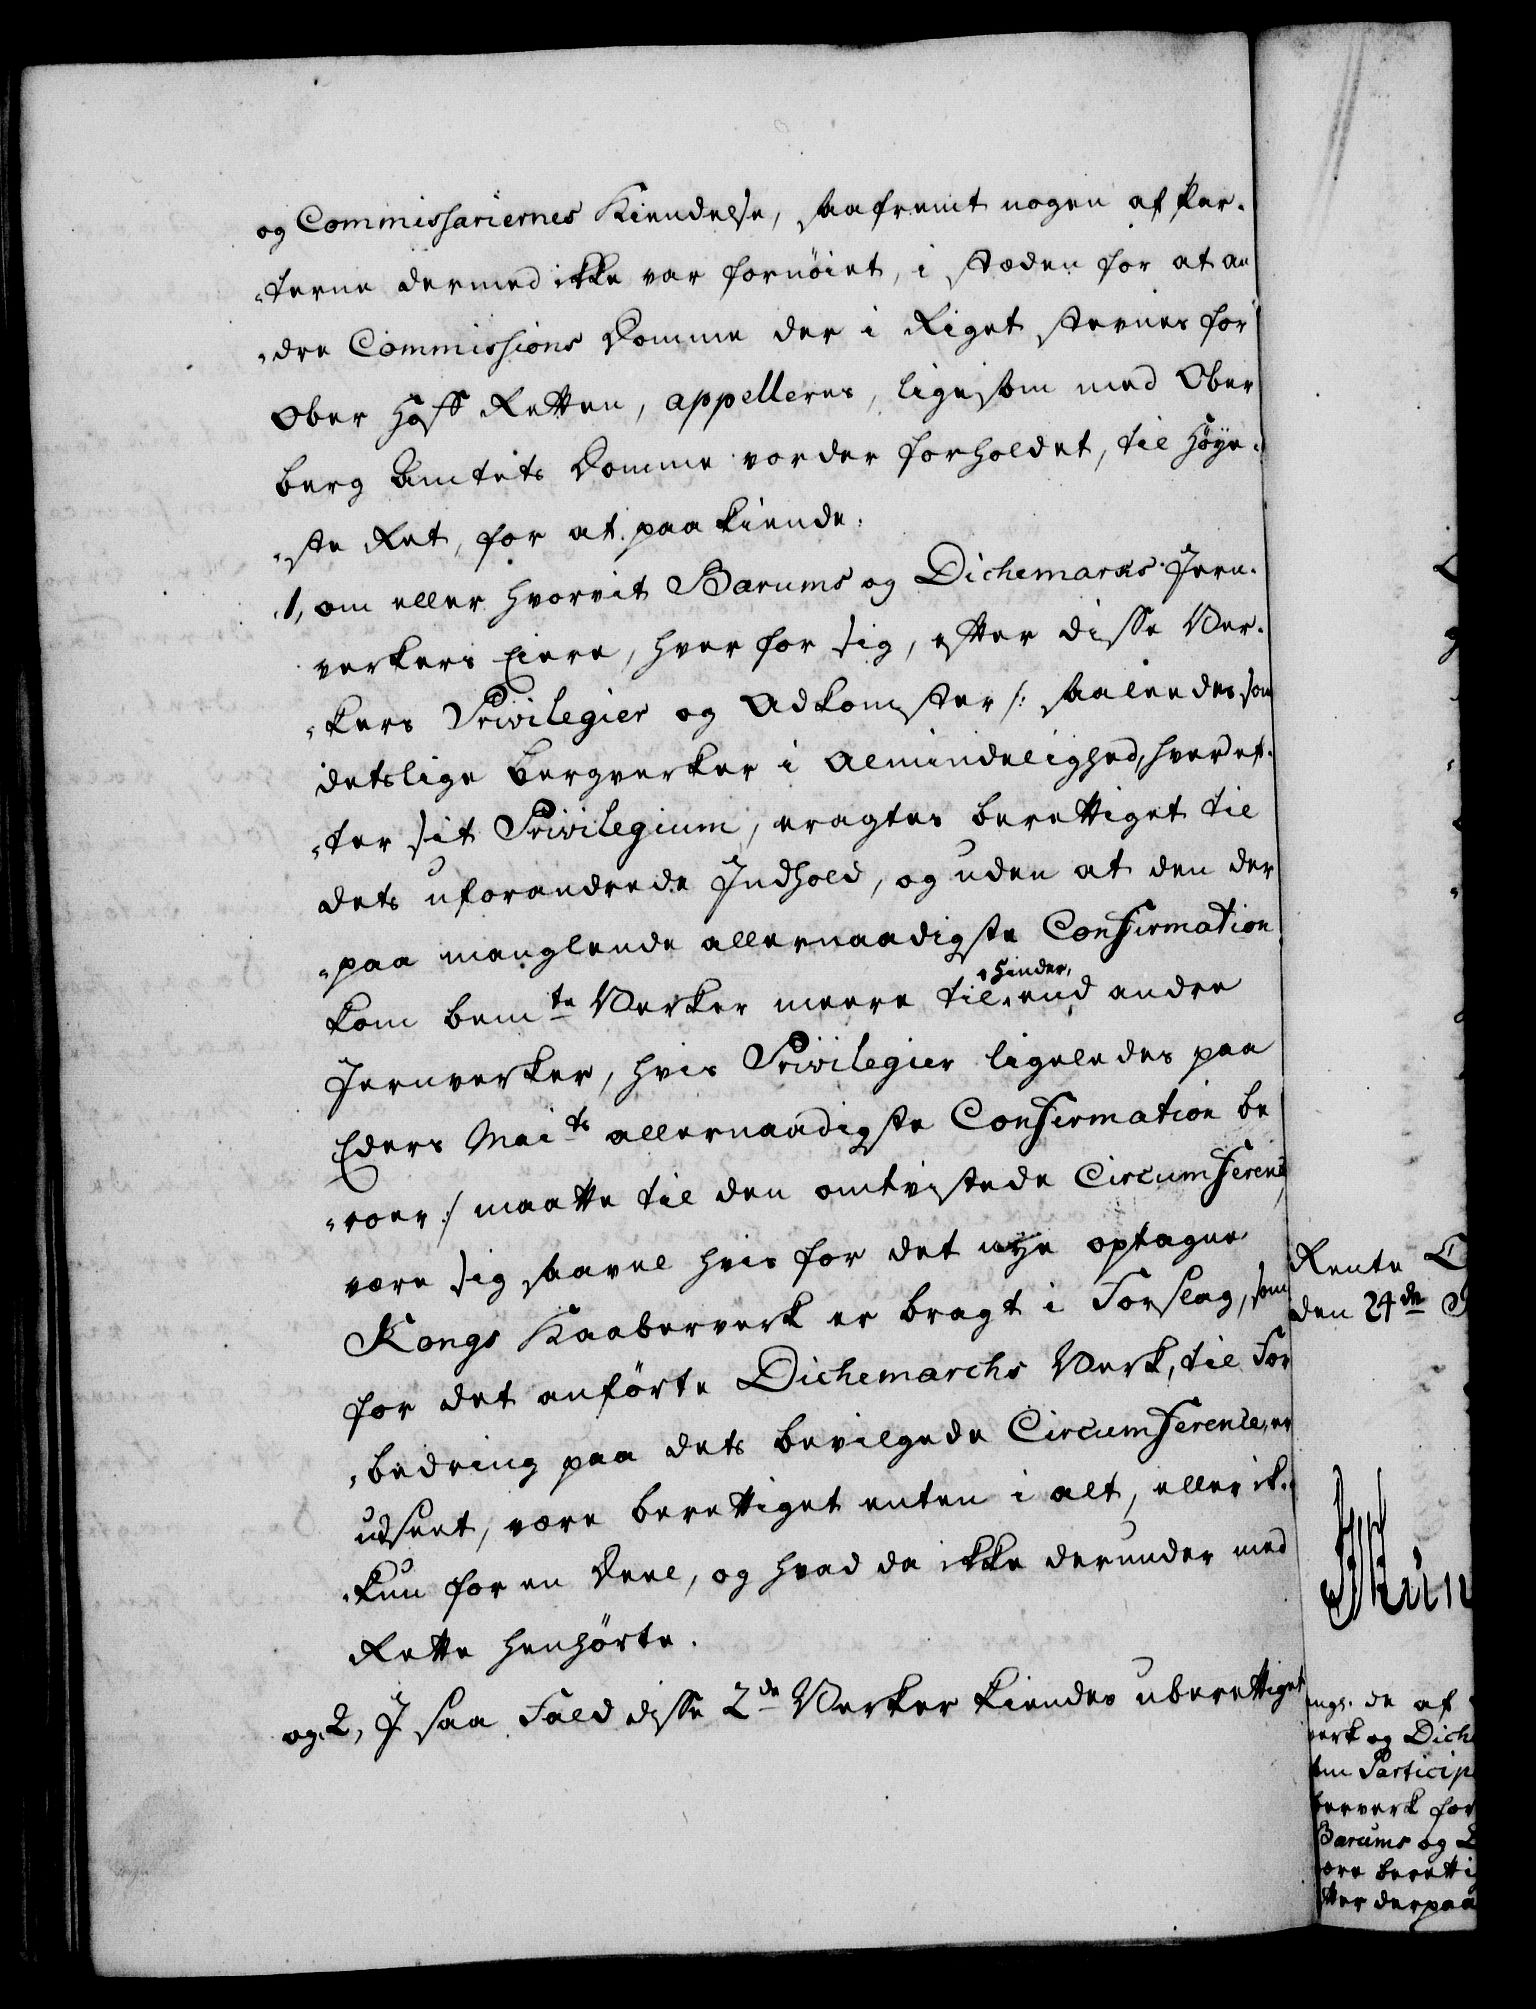 og Commissariernes Kiendelse, saafremt nogen af Par-
-terne dermed ikke var fornøiet, i stæden for at an
-dre Commissions Domme der i Riget stevnes for
Ober Hoff Retten, appelleres, ligesom med Ober
berg Amtets Domme vorder forholdet, til Høye-
-ste Ret, for at paakiende.
1, om eller hvorvit Barums og Dichemarks Jern-
verkers Eiere, hver for sig, efter disse Ver-
-kers Privilegier og Adkomster /: saaleedes som
detslige Bergverker i Almindelighed, hver ef-
-ter sit Privilegium, eragtes berettiget til
dets uforandrede Indhold, og uden at den der
-paa manglende allernaadigste Confirmation
kom bemte Verker meere til Hinder, end andre
Jernverker, hvis Privilegier ligeledes paa
Eders Maits allernaadigste Confirmation be
-roer :/ maatte til den omtvistede Circumference
være sig saavel hvis for det nye optagne
Kongs Kaaberverk er bragt i Forslag, som
for det anførte Dichemarchs Verk, til For
-bedring paa dets bevilgede Circumference, er
udseet, være berettiget enten i alt, eller ik-
-kun for en Deel, og hvad da ikke derunder med
Rette henhørte.
og 2, I saa Fald disse 2de Verker kiendes uberettiget
Rente
den 24de
de af
verk og Dich
Particip
berverk for
Barums og
ære beretti
derpaa